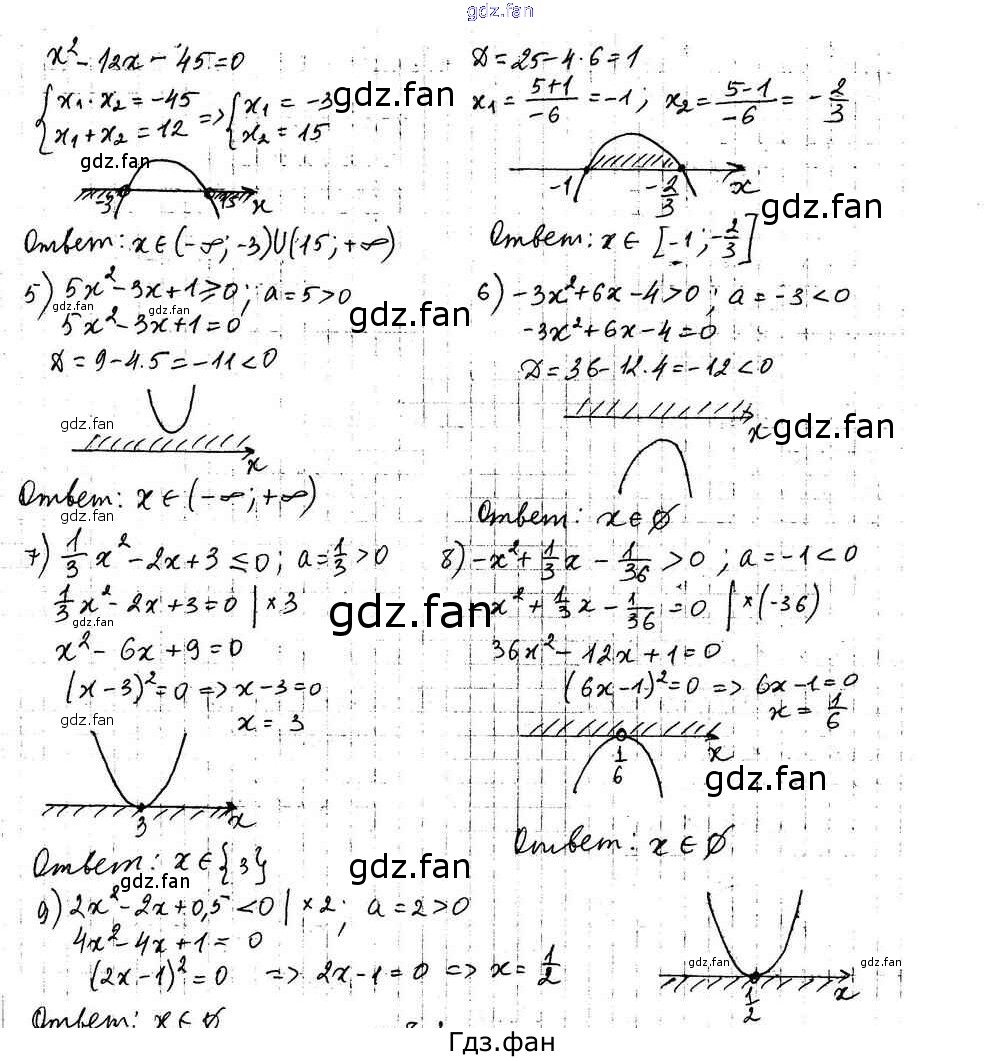 gdz.fan
x² - 12x - 45 = 0
{x₁ · x₂ = -45 => {x₁ = -3
{x₁ + x₂ = 12 {x₂ = 15
gdz.fan
gdz.fan
-3 15 x
Ответ: x ∈ (-∞; -3)∪(15; +∞)
Д = 25 - 4 · 6 = 1
x₁ = (5+1)/(-6) = -1; x₂ = (5-1)/(-6) = -2/3
-1 -2/3 x
gdz.fan
Ответ: x ∈ [-1; -2/3]
5) 5x² - 3x + 1 ≥ 0; a = 5 > 0
gdz.fan gdz.fan gdz.fan
5x² - 3x + 1 = 0
Д = 9 - 4·5 = -11 < 0
gdz.fan
x
Ответ: x ∈ (-∞; +∞)
gdz.fan
6) -3x² + 6x - 4 > 0; a = -3 < 0
-3x² + 6x - 4 = 0
Д = 36 - 12·4 = -12 < 0
x gdz.fan
Ответ: x ∈ ∅
7) 1/3 x² - 2x + 3 ≤ 0; a = 1/3 > 0
1/3 x² - 2x + 3 = 0 | × 3
gdz.fan
x² - 6x + 9 = 0
(x - 3)² = 0 => x - 3 = 0
gdz.fan
x = 3
3 x
Ответ: x ∈ {3}
gdz.fan
gdz.fan
8) -x² + 1/3 x - 1/36 > 0; a = -1 < 0
-x² + 1/3 x - 1/36 = 0 | × (-36)
36x² - 12x + 1 = 0
(6x - 1)² = 0 => 6x - 1 = 0
x = 1/6
1/6 x
gdz.fan
Ответ: x ∈ ∅
9) 2x² - 2x + 0,5 < 0 | × 2; a = 2 > 0
4x² - 4x + 1 = 0
(2x - 1)² = 0 => 2x - 1 = 0 => x = 1/2
gdz.fan gdz.fan
1/2 x
Ответ: x ∈ ∅
Гдз.фан